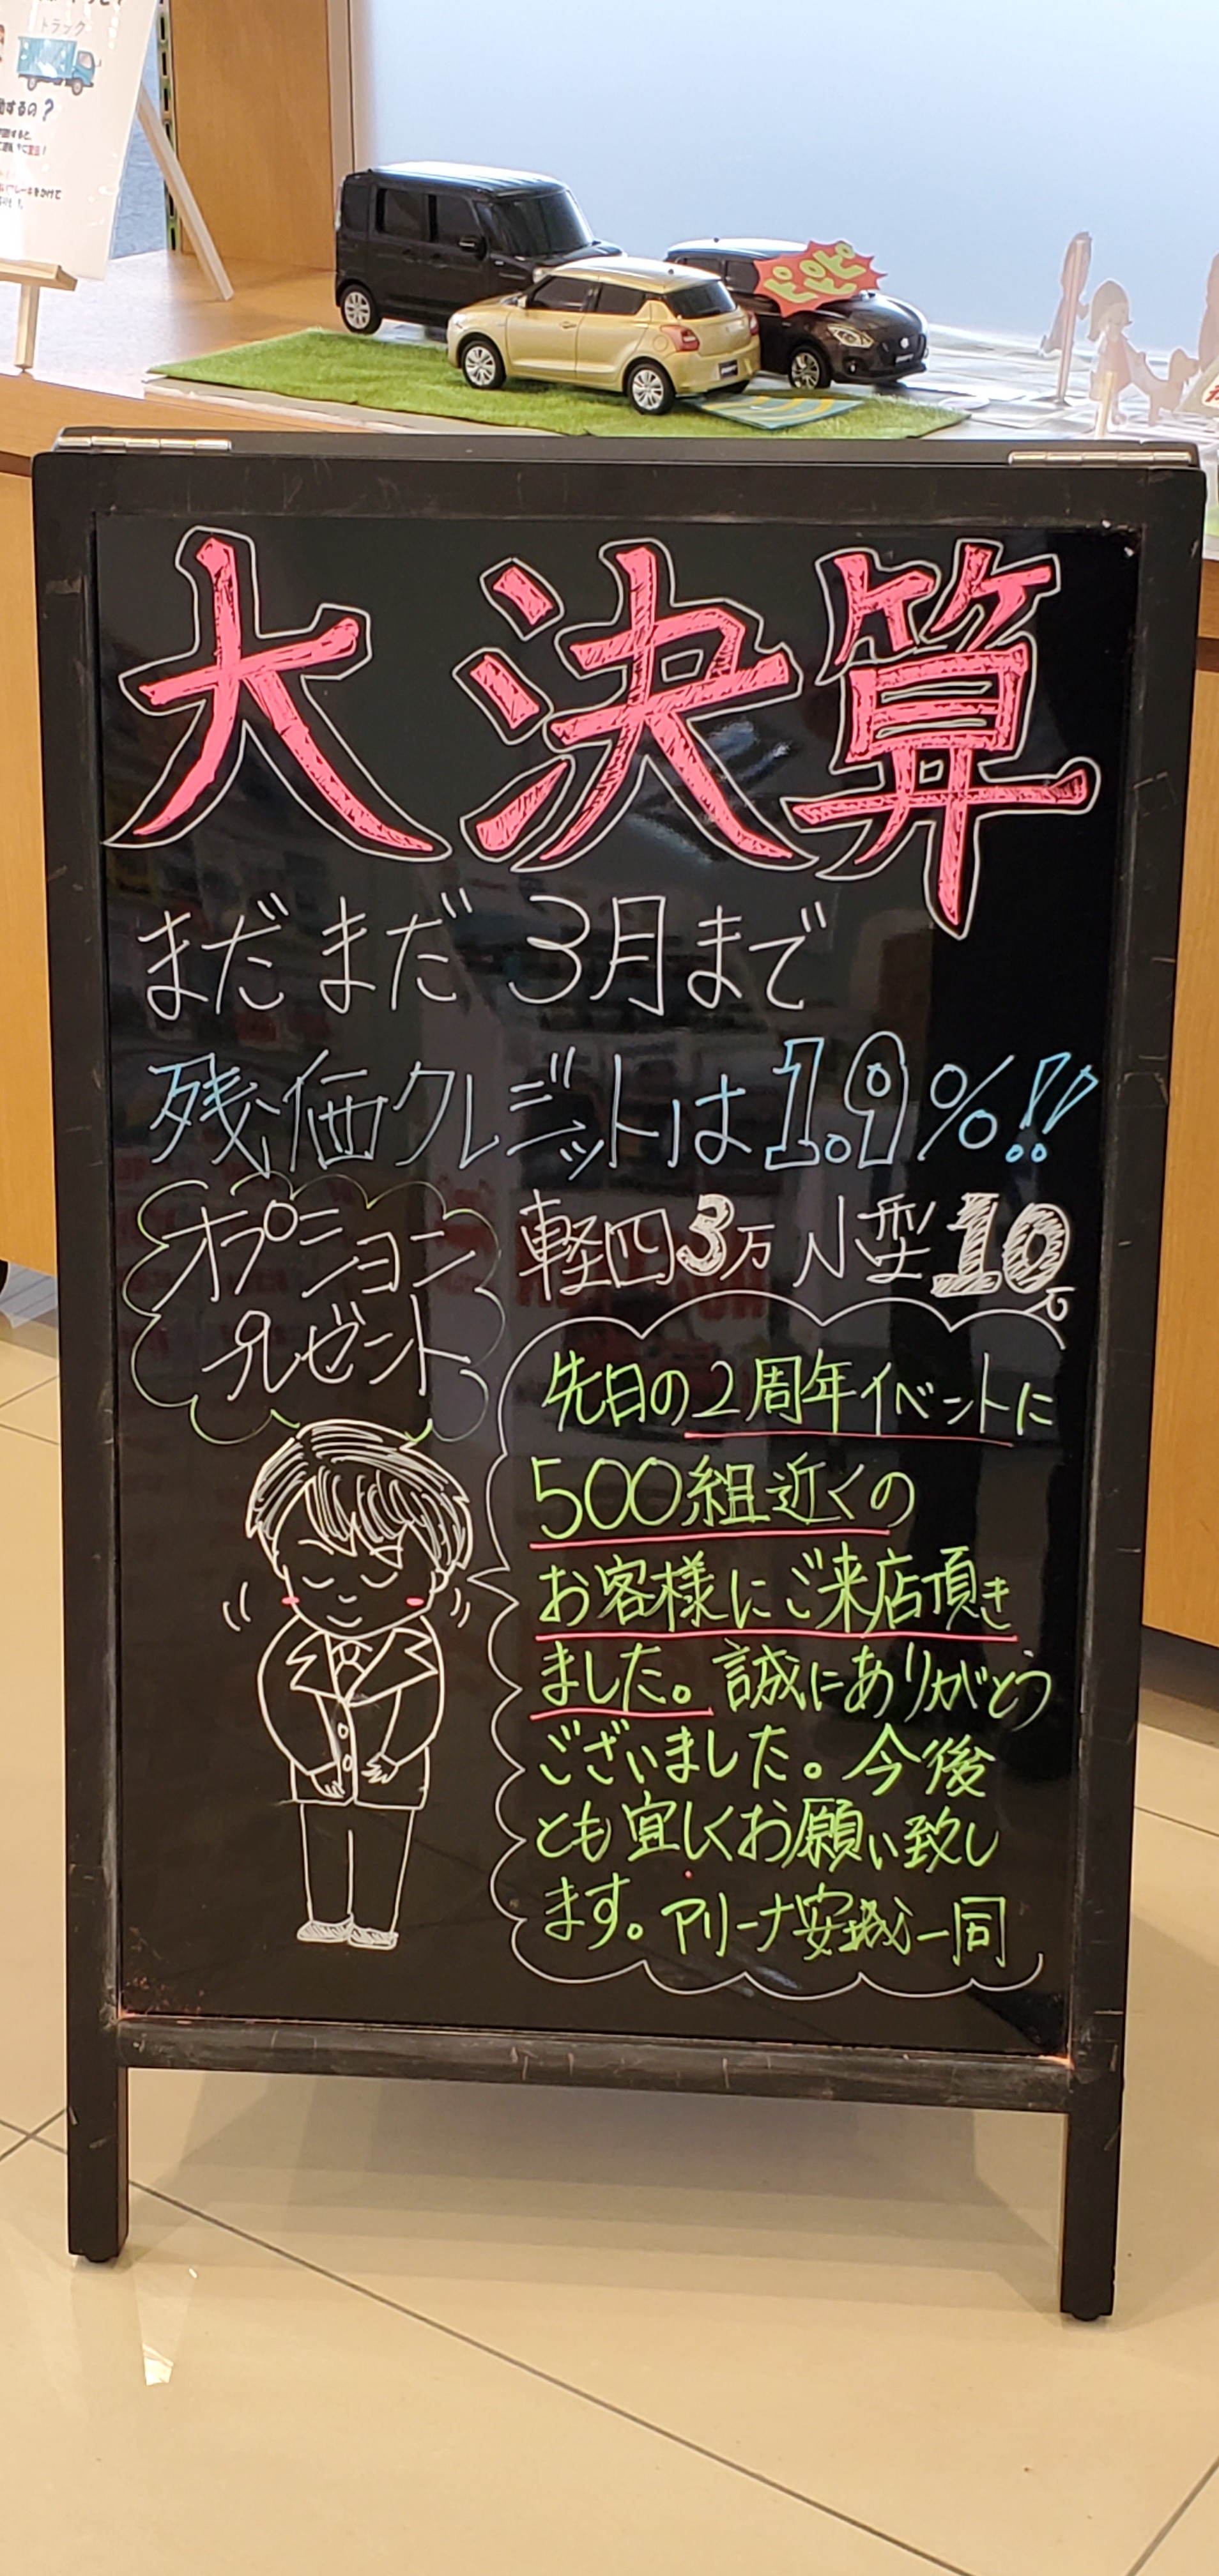 トラック
大決算
まだまだ 3月まで
残価クレジットは1.9%!!
オプション
プレゼント
軽四3万 小型10万
先日の2周年イベントに
500組近くの
お客様にご来店頂き
ました。誠にありがとう
ございました。今後
とも宜しくお願い致し
ます。アリーナ安城一同
ピピピ